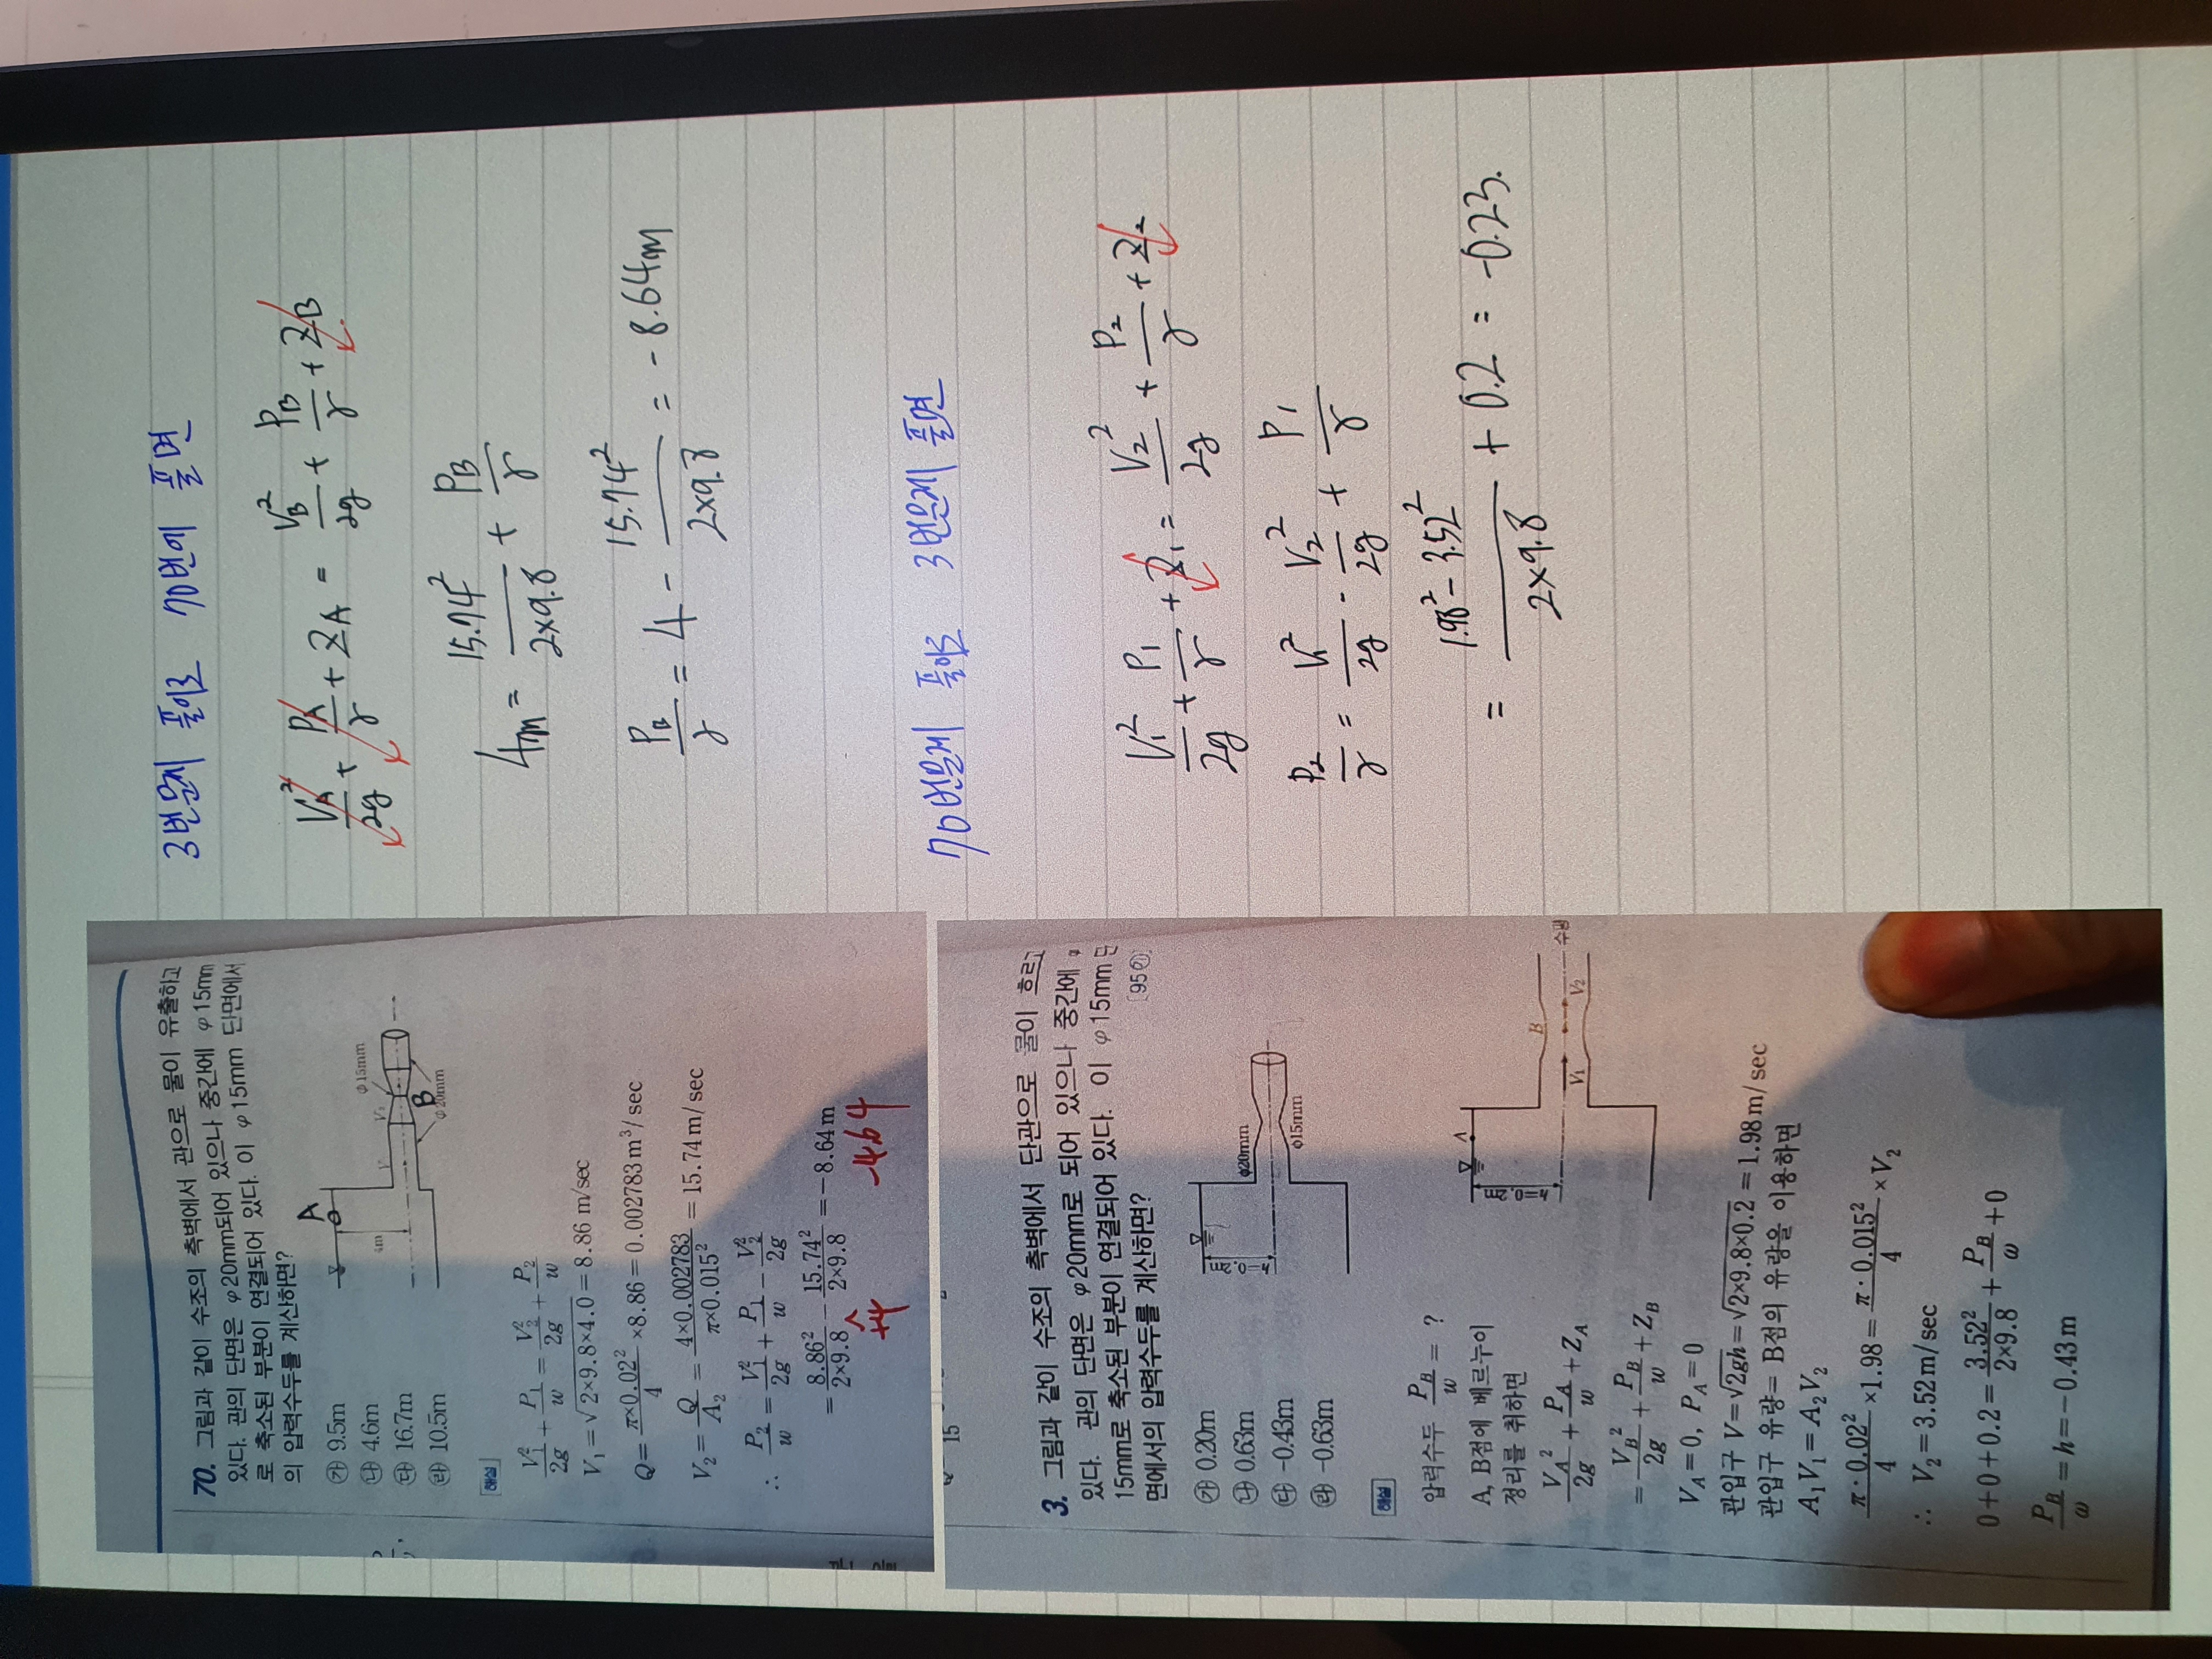 70. 그림과 같이 수조의 측벽에서 관으로 물이 유출하고
있다. 관의 단면은 φ20mm되어 있으나 중간에 φ15mm
로 축소된 부분이 연결되어 있다. 이 φ15mm 단면에서
의 압력수두를 계산하면?
㉮ 9.5m
㉯ 4.6m
㉰ 16.7m
㉱ 10.5m
A
4m
V
V₁
φ15mm
B
φ20mm
해설
V₁²/2g + P₁/w = V₂²/2g + P₂/w
V₁=√2×9.8×4.0=8.86 m/sec
Q= π×0.02²/4 ×8.86=0.002783m³/sec
V₂= Q/A₂ = 4×0.002783/π×0.015² =15.74m/sec
∴ P₂/w = V₁²/2g + P₁/w − V₂²/2g
= 8.86²/2×9.8 − 15.74²/2×9.8 =−8.64m
+4
-4.64
3. 그림과 같이 수조의 측벽에서 단관으로 물이 흐르고
있다. 관의 단면은 φ20mm로 되어 있으나 중간에 φ
15mm로 축소된 부분이 연결되어 있다. 이 φ15mm 단
면에서의 압력수두를 계산하면?
㉮ 0.20m
㉯ 0.63m
㉰ −0.43m
㉱ −0.63m
φ20mm
φ15mm
해설
압력수두 P_B/w = ?
A, B점에 베르누이
정리를 취하면
V_A²/2g + P_A/w + Z_A
= V_B²/2g + P_B/w + Z_B
A
B
V₁
V₂
V_A=0, P_A=0
관입구 V=√2gh=√2×9.8×0.2=1.98m/sec
관입구 유량= B점의 유량을 이용하면
A₁V₁=A₂V₂
π·0.02²/4 ×1.98= π·0.015²/4 ×V₂
∴ V₂=3.52m/sec
0+0+0.2= 3.52²/2×9.8 + P_B/w +0
P_B/w =h=−0.43m
3번문제 풀이로 70번이 풀면
V_A²/2g + P_A/γ + Z_A = V_B²/2g + P_B/γ + Z_B
4m = 15.74²/2×9.8 + P_B/γ
P_B/γ = 4 - 15.74²/2×9.8 = -8.64m
70번문제 풀이로 3번문제 풀면
V₁²/2g + P₁/γ + Z₁ = V₂²/2g + P₂/γ + Z₂
P₂/γ = V₁²/2g - V₂²/2g + P₁/γ
= 1.98² - 3.52²/2×9.8 + 0.2 = -0.23.